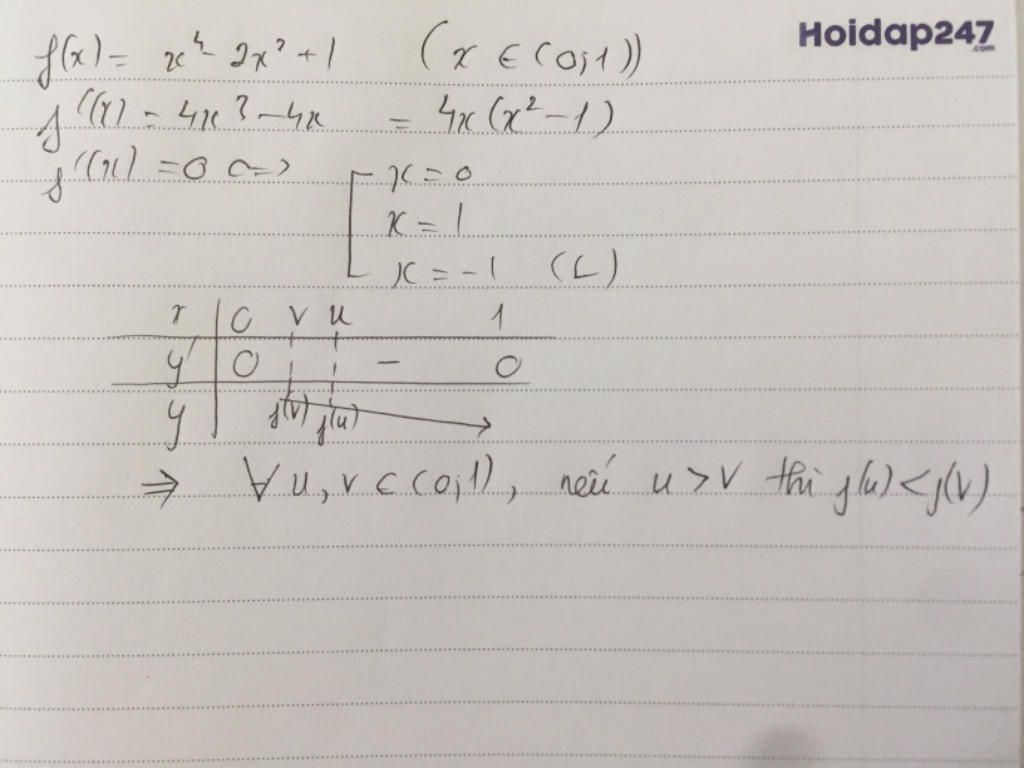 Hoidap247
.com
f(x) = x⁴ - 2x² + 1 (x ∈ (0;1))
f'(x) = 4x³ - 4x = 4x(x² - 1)
f'(x) = 0 <=> [ x = 0
x = 1
x = -1 (L)
x | 0 v u 1
y' | 0 - 0
y | f(v) f(u)
=> ∀ u, v ⊂ (0;1), nếu u > v thì f(u) < f(v)